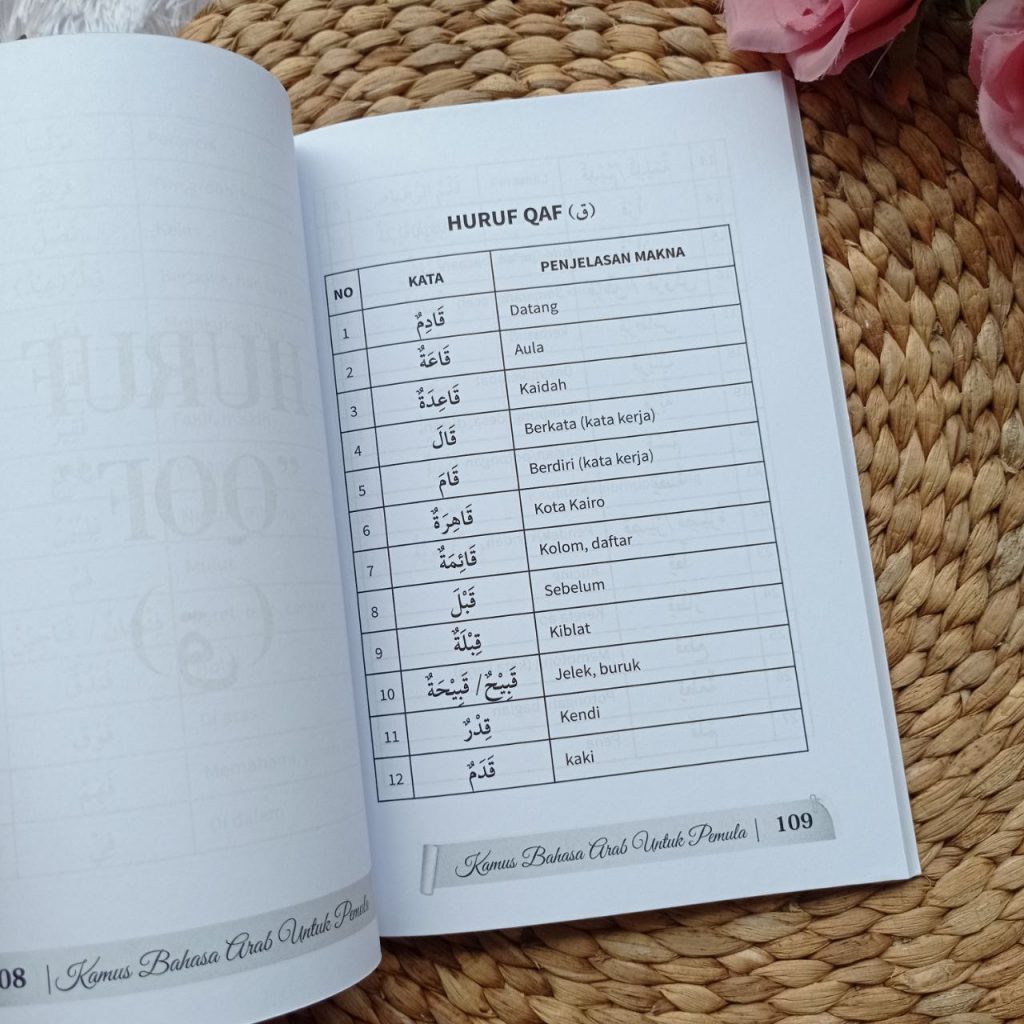 HURUF QAF (ق)
NO KATA PENJELASAN MAKNA
1 قَادِمٌ Datang
2 قَاعَةٌ Aula
3 قَاعِدَةٌ Kaidah
4 قَالَ Berkata (kata kerja)
5 قَامَ Berdiri (kata kerja)
6 قَاهِرَةٌ Kota Kairo
7 قَائِمَةٌ Kolom, daftar
8 قَبْلَ Sebelum
9 قِبْلَةٌ Kiblat
10 قَبِيْحٌ / قَبِيْحَةٌ Jelek, buruk
11 قِدْرٌ Kendi
12 قَدَمٌ kaki
Kamus Bahasa Arab Untuk Pemula | 109
08 | Kamus Bahasa Arab Untuk Pemula
HURUF
"QOF"
(ق)